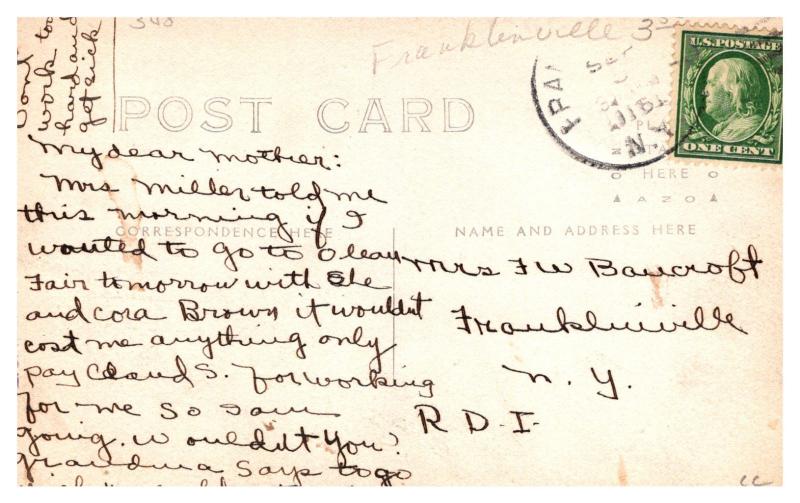 Dont
work too
hard and
get sick
348
Franklinville 3
U.S. POSTAGE
ONE CENT
POST CARD
HERE
AZO
CORRESPONDENCE HERE
NAME AND ADDRESS HERE
My dear mother:
Mrs Miller told me
this morning if I
wanted to go to Olean
Fair tomorrow with she
and Cora Brown it wouldnt
cost me anything only
pay Claud S. for working
for me so I am
going. Wouldnt you?
Grandma says to go
Mrs F W Bancroft
Franklinville
N. Y.
R. D. I.